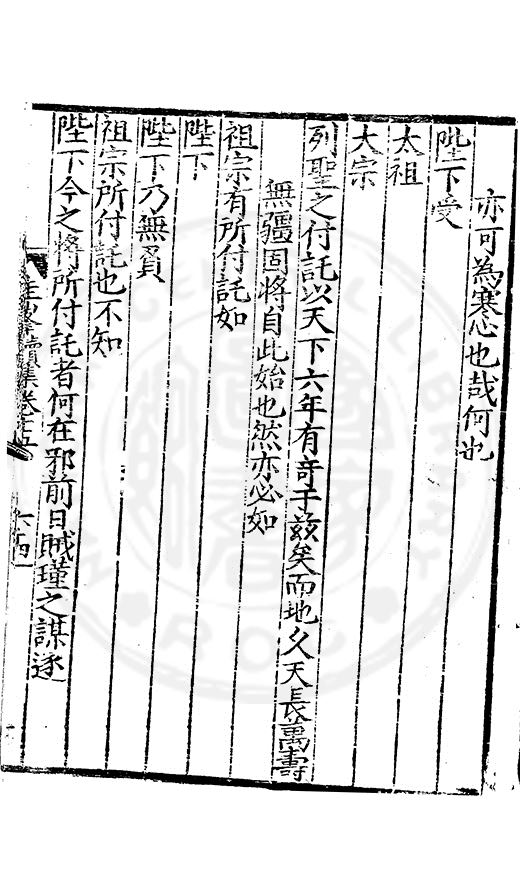 亦可為寒心也哉何也
陛下受
太祖
太宗
列聖之付託以天下六年有竒于茲矣而地久天長萬壽
無疆固將自此始也然亦必如
祖宗有所付託如
陛下
陛下乃無負
祖宗所付託也不知
陛下今之將所付託者何在邪前日賊瑾之謀逐
續集卷之五